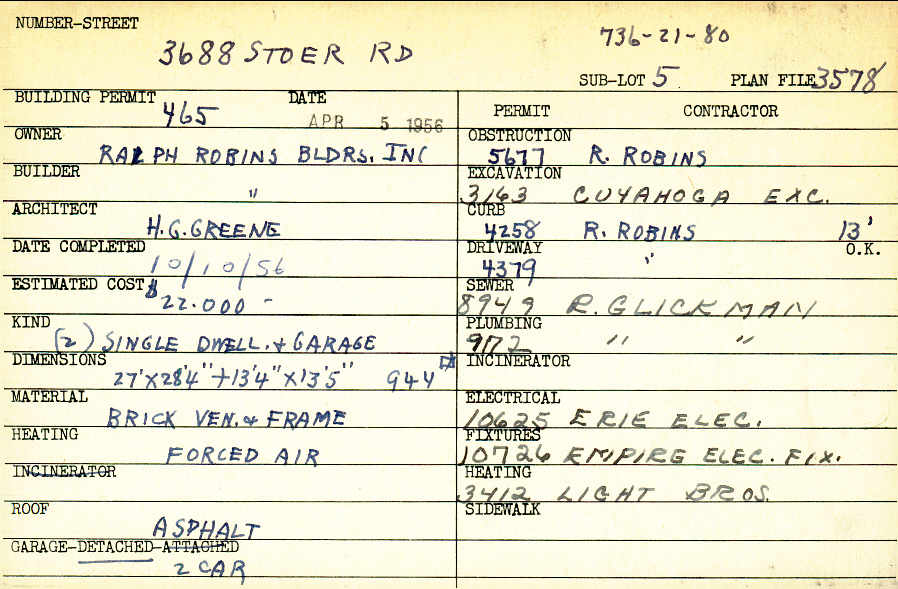 NUMBER-STREET
3688 STOER RD
736-21-80
SUB-LOT 5 PLAN FILE 3578
BUILDING PERMIT 465 DATE APR 5 1956
OWNER RALPH ROBINS BLDRS. INC
BUILDER "
ARCHITECT H.G. GREENE
DATE COMPLETED 10/10/56
ESTIMATED COST $22.000 -
KIND (2) SINGLE DWELL. & GARAGE
DIMENSIONS 27' X 28'4" + 13'4" X 13'5" 944
MATERIAL BRICK VEN. & FRAME
HEATING FORCED AIR
INCINERATOR
ROOF ASPHALT
GARAGE-DETACHED-ATTACHED
2 CAR
PERMIT CONTRACTOR
OBSTRUCTION 5677 R. ROBINS
EXCAVATION 3163 CUYAHOGA EXC.
CURB 4258 R. ROBINS 13' O.K.
DRIVEWAY 4379 "
SEWER 8949 R. GLICKMAN
PLUMBING 9172 " "
INCINERATOR
ELECTRICAL 10625 ERIE ELEC.
FIXTURES 10726 EMPIRE ELEC. FIX.
HEATING 3412 LIGHT BROS.
SIDEWALK